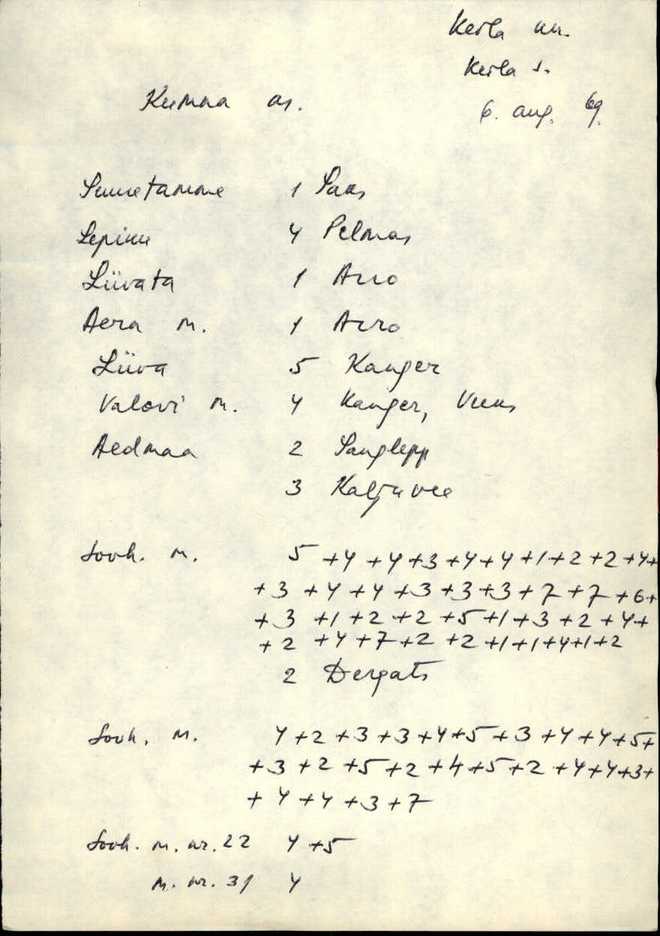 Keila khn.
Keila s.
Kumna as.
6. aug. 69.
Suuretamme 1 Saas
Lepiku 4 Pelmas
Liivata 1 Arro
Aera m. 1 Arro
Liiva 5 Kanger
Valdvi m. 4 Kanger,
Aedmaa 2 Sanglepp
3 Kaljuvee
Sovh. m. 5 +4 +4 +3 +4 +4 +1 +2 +2 +4+
+3 +4 +4 +3 +3 +3 +7 +7 +6+
+3 +1 +2 +2 +5 +1 +3 +2 +4+
+2 +4 +7 +2 +2 +1 +1 +4 +1 +2
2 Dergats
Sovh. m. 4 +2 +3 +3 +4 +5 +3 +4 +4 +5+
+3 +2 +5 +2 +4 +5 +2 +4 +4 +3+
+4 +4 +3 +7
Sovh. m. nr. 22 4 +5
m. nr. 31 4